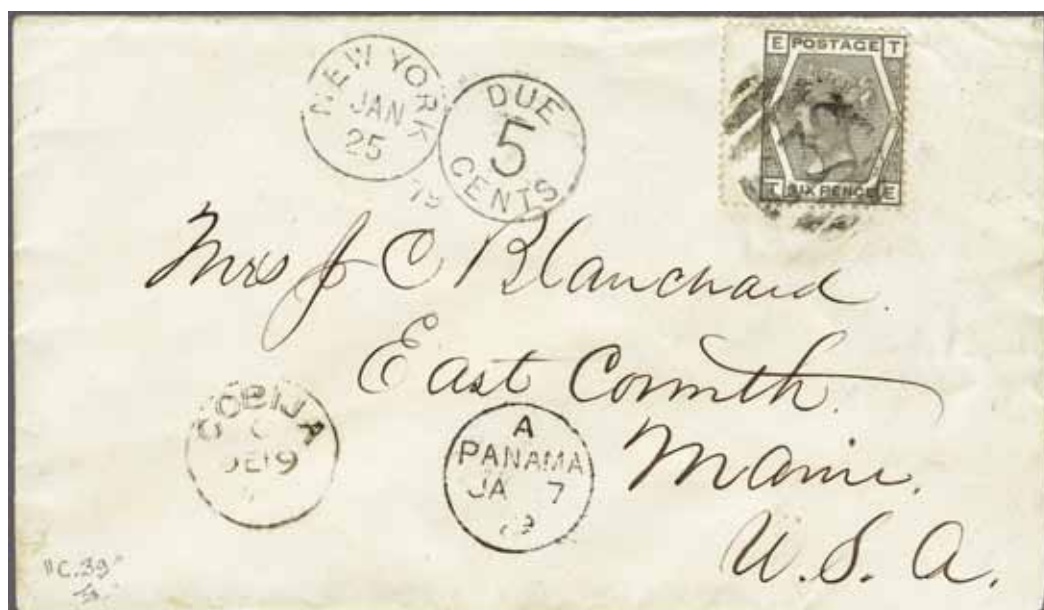 NEW YORK
JAN
25
79
DUE
5
CENTS
E POSTAGE T
T SIX PENCE E
Mrs J C Blanchard
East Corinth
Maine.
U.S.A.
COBIJA
C
DE 19
A
PANAMA
JA 7
"C.39"